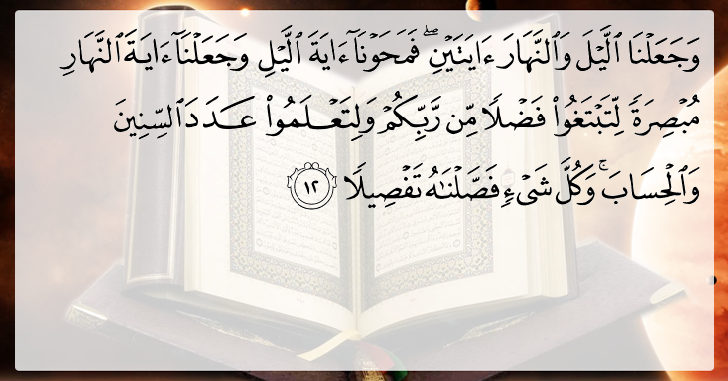 وَجَعَلْنَا ٱلَّيْلَ وَٱلنَّهَارَ ءَايَتَيْنِ ۖ فَمَحَوْنَآ ءَايَةَ ٱلَّيْلِ وَجَعَلْنَآ ءَايَةَ ٱلنَّهَارِ
مُبْصِرَةً لِّتَبْتَغُوا۟ فَضْلًا مِّن رَّبِّكُمْ وَلِتَعْلَمُوا۟ عَدَدَ ٱلسِّنِينَ
وَٱلْحِسَابَ ۚ وَكُلَّ شَىْءٍ فَصَّلْنَٰهُ تَفْصِيلًا ١٢